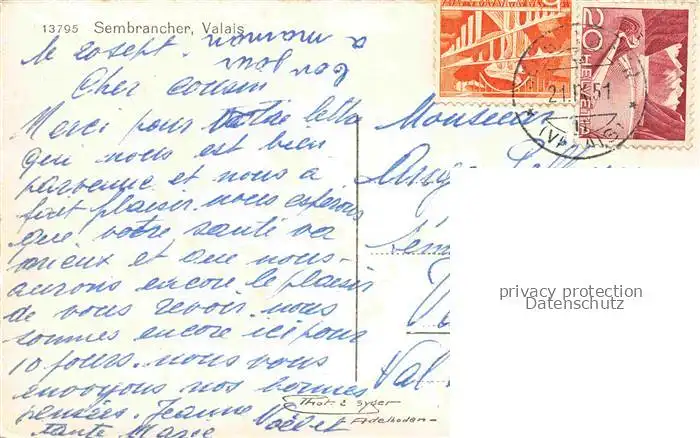 13795 Sembrancher, Valais
le 20 sept.
bonjour
à maman
Cher cousin
Merci pour votre lettre
qui nous est bien
parvenue et nous a
fait plaisir. nous espérons
que votre santé va
mieux et que nous
aurons encore le plaisir
de vous revoir. nous
sommes encore ici pour
10 jours. nous vous
envoyons nos bonnes
pensées. Jeanne
tante Marie
Monsieur
Val
20
HELVETIA
21.IX.51
Phot. E. Gyger
Adelboden
privacy protection
Datenschutz